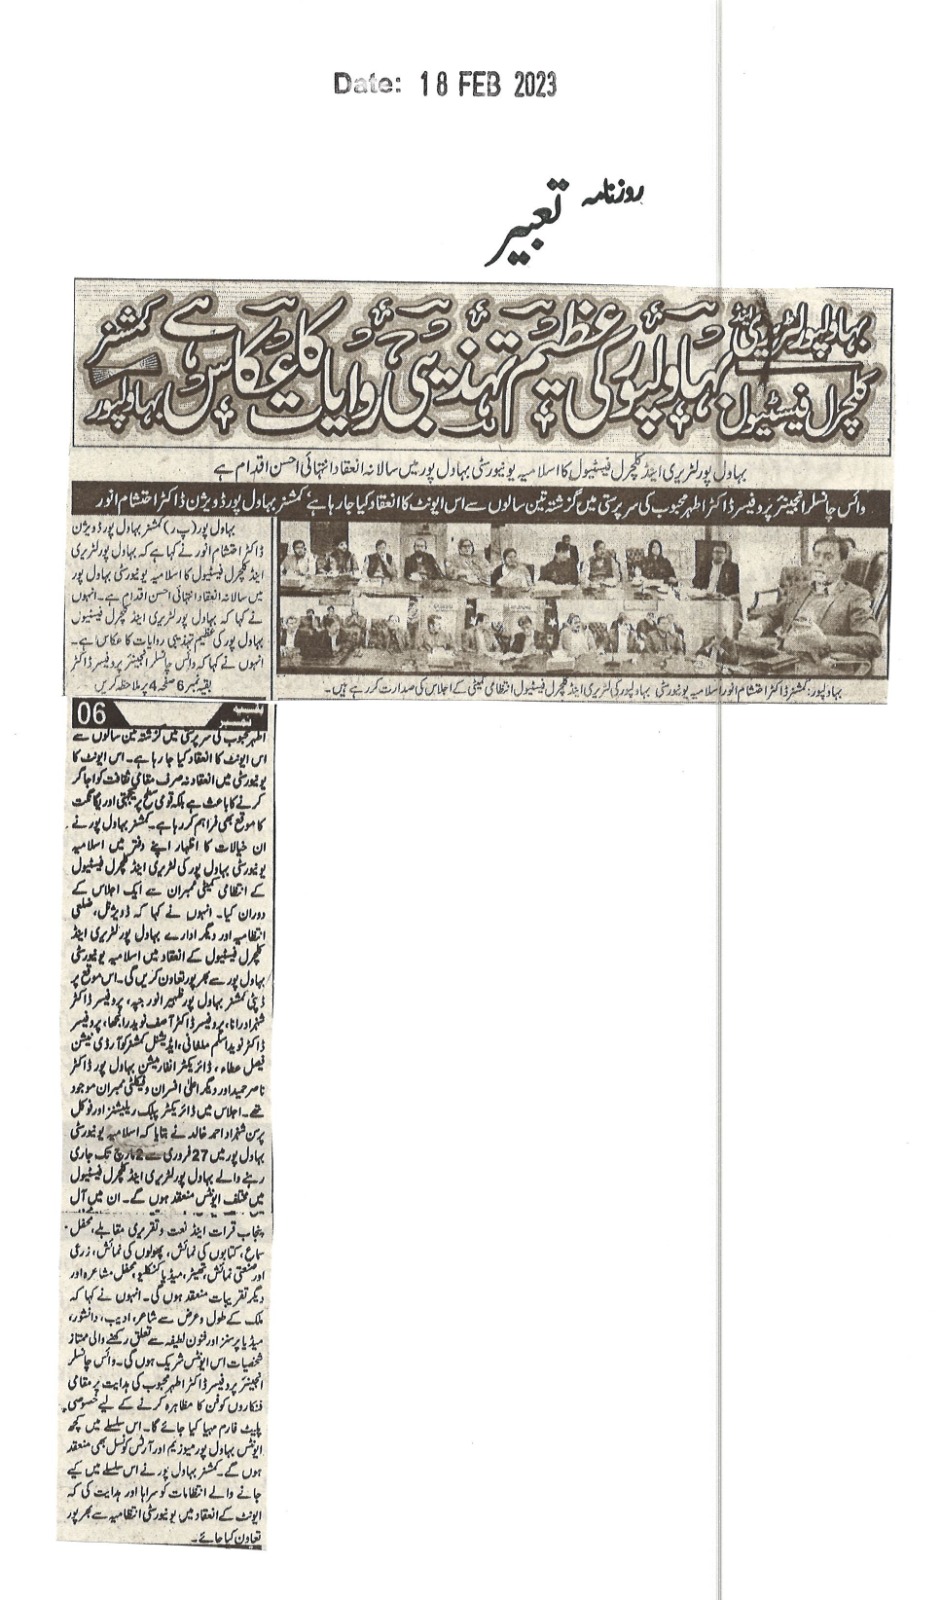 Date: 18 FEB 2023
روزنامہ تعبیر
بہاولپور لٹریری اینڈ کلچرل فیسٹیول بہاولپور کی عظیم تہذیبی روایات کا عکاس ہے کمشنر بہاولپور
بہاول پور لٹریری اینڈ کلچرل فیسٹیول کا اسلامیہ یونیورسٹی بہاول پور میں سالانہ انعقاد انتہائی احسن اقدام ہے
وائس چانسلر انجینئر پروفیسر ڈاکٹر اطہر محبوب کی سرپرستی میں گزشتہ تین سالوں سے اس ایونٹ کا انعقاد کیا جا رہا ہے کمشنر بہاول پور ڈویژن ڈاکٹر احتشام انور
بہاول پور (پ ر) کمشنر بہاول پور ڈویژن
ڈاکٹر احتشام انور نے کہا ہے کہ بہاول پور لٹریری
اینڈ کلچرل فیسٹیول کا اسلامیہ یونیورسٹی بہاول پور
میں سالانہ انعقاد انتہائی احسن اقدام ہے۔ انہوں
نے کہا کہ بہاول پور لٹریری اینڈ کلچرل فیسٹیول
بہاول پور کی عظیم تہذیبی روایات کا عکاس ہے۔
انہوں نے کہا کہ وائس چانسلر انجینئر پروفیسر ڈاکٹر
بقیہ نمبر 6 صفحہ 4 پر ملاحظہ کریں
بہاولپور: کمشنر ڈاکٹر احتشام انور اسلامیہ یونیورسٹی بہاولپور کی لٹریری اینڈ کلچرل فیسٹیول انتظامی کمیٹی کے اجلاس کی صدارت کر رہے ہیں۔
بقیہ نمبر 06
اطہر محبوب کی سرپرستی میں گزشتہ تین سالوں سے
اس ایونٹ کا انعقاد کیا جا رہا ہے۔ اس ایونٹ کا
یونیورسٹی میں انعقاد نہ صرف مقامی ثقافت کو اجاگر
کرنے کا باعث ہے بلکہ قومی سطح پر یکجہتی اور یگانگت
کا موقع بھی فراہم کر رہا ہے۔ کمشنر بہاول پور نے
ان خیالات کا اظہار اپنے دفتر میں اسلامیہ
یونیورسٹی بہاول پور کی لٹریری اینڈ کلچرل فیسٹیول
کے انتظامی کمیٹی ممبران سے ایک اجلاس کے
دوران کیا۔ انہوں نے کہا کہ ڈویژنل، ضلعی
انتظامیہ اور دیگر ادارے بہاول پور لٹریری اینڈ
کلچرل فیسٹیول کے انعقاد میں اسلامیہ یونیورسٹی
بہاول پور سے بھرپور تعاون کریں گی۔ اس موقع پر
ڈپٹی کمشنر بہاول پور ظہیر انور جپہ، پروفیسر ڈاکٹر
شہزاد رانا، پروفیسر ڈاکٹر آصف نوید رانجھا، پروفیسر
ڈاکٹر نوید اسلم ملغانی، ایڈیشنل کمشنر کوآرڈی نیشن
فیصل عطاء، ڈائریکٹر انفارمیشن بہاول پور ڈاکٹر
ناصر حمید اور دیگر اعلیٰ افسران و فیکلٹی ممبران موجود
تھے۔ اجلاس میں ڈائریکٹر پبلک ریلیشنز اور فوکل
پرسن شہزاد احمد خالد نے بتایا کہ اسلامیہ یونیورسٹی
بہاول پور میں 27 فروری سے 2 مارچ تک جاری
رہنے والے بہاول پور لٹریری اینڈ کلچرل فیسٹیول
میں مختلف ایونٹس منعقد ہوں گے۔ ان میں آل
پنجاب قرات اینڈ نعت و تقریری مقابلے، محفل
سماع، کتابوں کی نمائش، پھولوں کی نمائش، زرعی
اور صنعتی نمائش، تھیٹر، میڈیا کنکلیو، محفل مشاعرہ اور
دیگر تقریبات منعقد ہوں گی۔ انہوں نے کہا کہ
ملک کے طول و عرض سے شاعر، ادیب، دانشور،
میڈیا پرسنز اور فنون لطیفہ سے تعلق رکھنے والی ممتاز
شخصیات اس ایونٹس شریک ہوں گی۔ وائس چانسلر
انجینئر پروفیسر ڈاکٹر اطہر محبوب کی ہدایت پر مقامی
فنکاروں کو فن کا مظاہرہ کرنے کے لیے خصوصی
پلیٹ فارم مہیا کیا جائے گا۔ اس سلسلے میں کچھ
ایونٹس بہاول پور میوزیم اور آرٹس کونسل بھی منعقد
ہوں گے۔ کمشنر بہاول پور نے اس سلسلے میں کیے
جانے والے انتظامات کو سراہا اور ہدایت کی کہ
ایونٹ کے انعقاد میں یونیورسٹی انتظامیہ سے بھرپور
تعاون کیا جائے۔